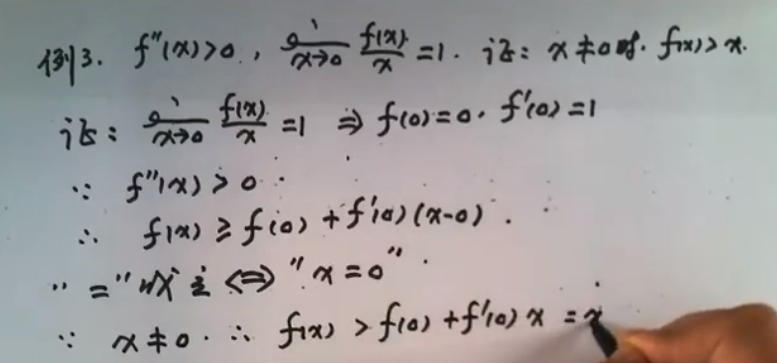 例3. f''(x)>0, lim x→0 f(x)/x =1. 证: x≠0时. f(x)>x.
证: lim x→0 f(x)/x =1 ⇒ f(0)=0. f'(0)=1
∵ f''(x)>0.
∴ f(x)≥f(0)+f'(0)(x-0).
"="成立⇔"x=0".
∵ x≠0. ∴ f(x)>f(0)+f'(0)x=x